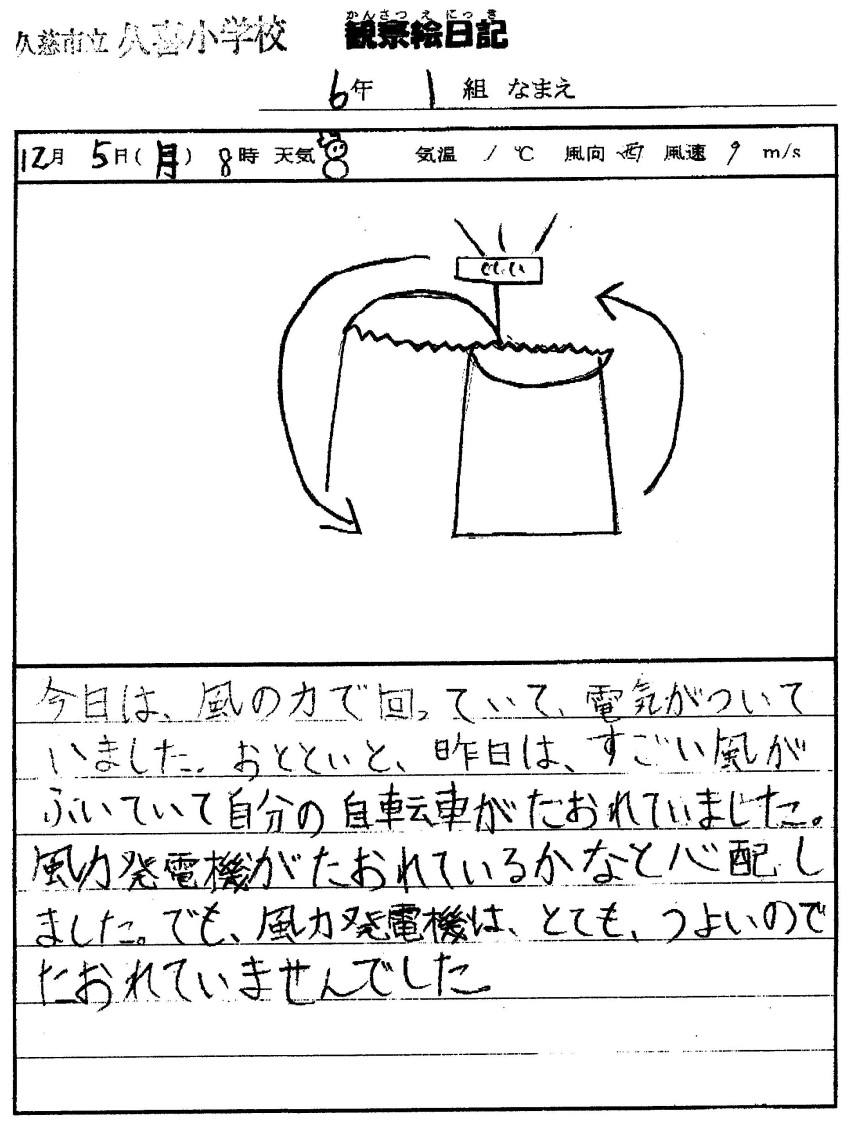 久慈市立 久喜小学校
かんさつ え にっ き
観察絵日記
6年 1組 なまえ
12月 5日(月) 8時 天気 気温 1 ℃ 風向 西 風速 9 m/s
今日は、風の力で回っていて、電気がついて
いました。おとといと、昨日は、すごい風が
ふいていて自分の自転車がたおれていました。
風力発電機がたおれているかなと心配し
ました。でも、風力発電機は、とても、つよいので
たおれていませんでした。